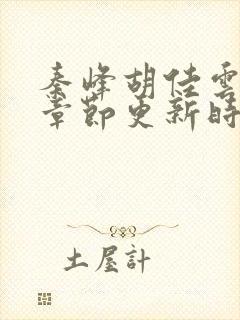 秦峰胡佳雲
章節更新時
土屋計